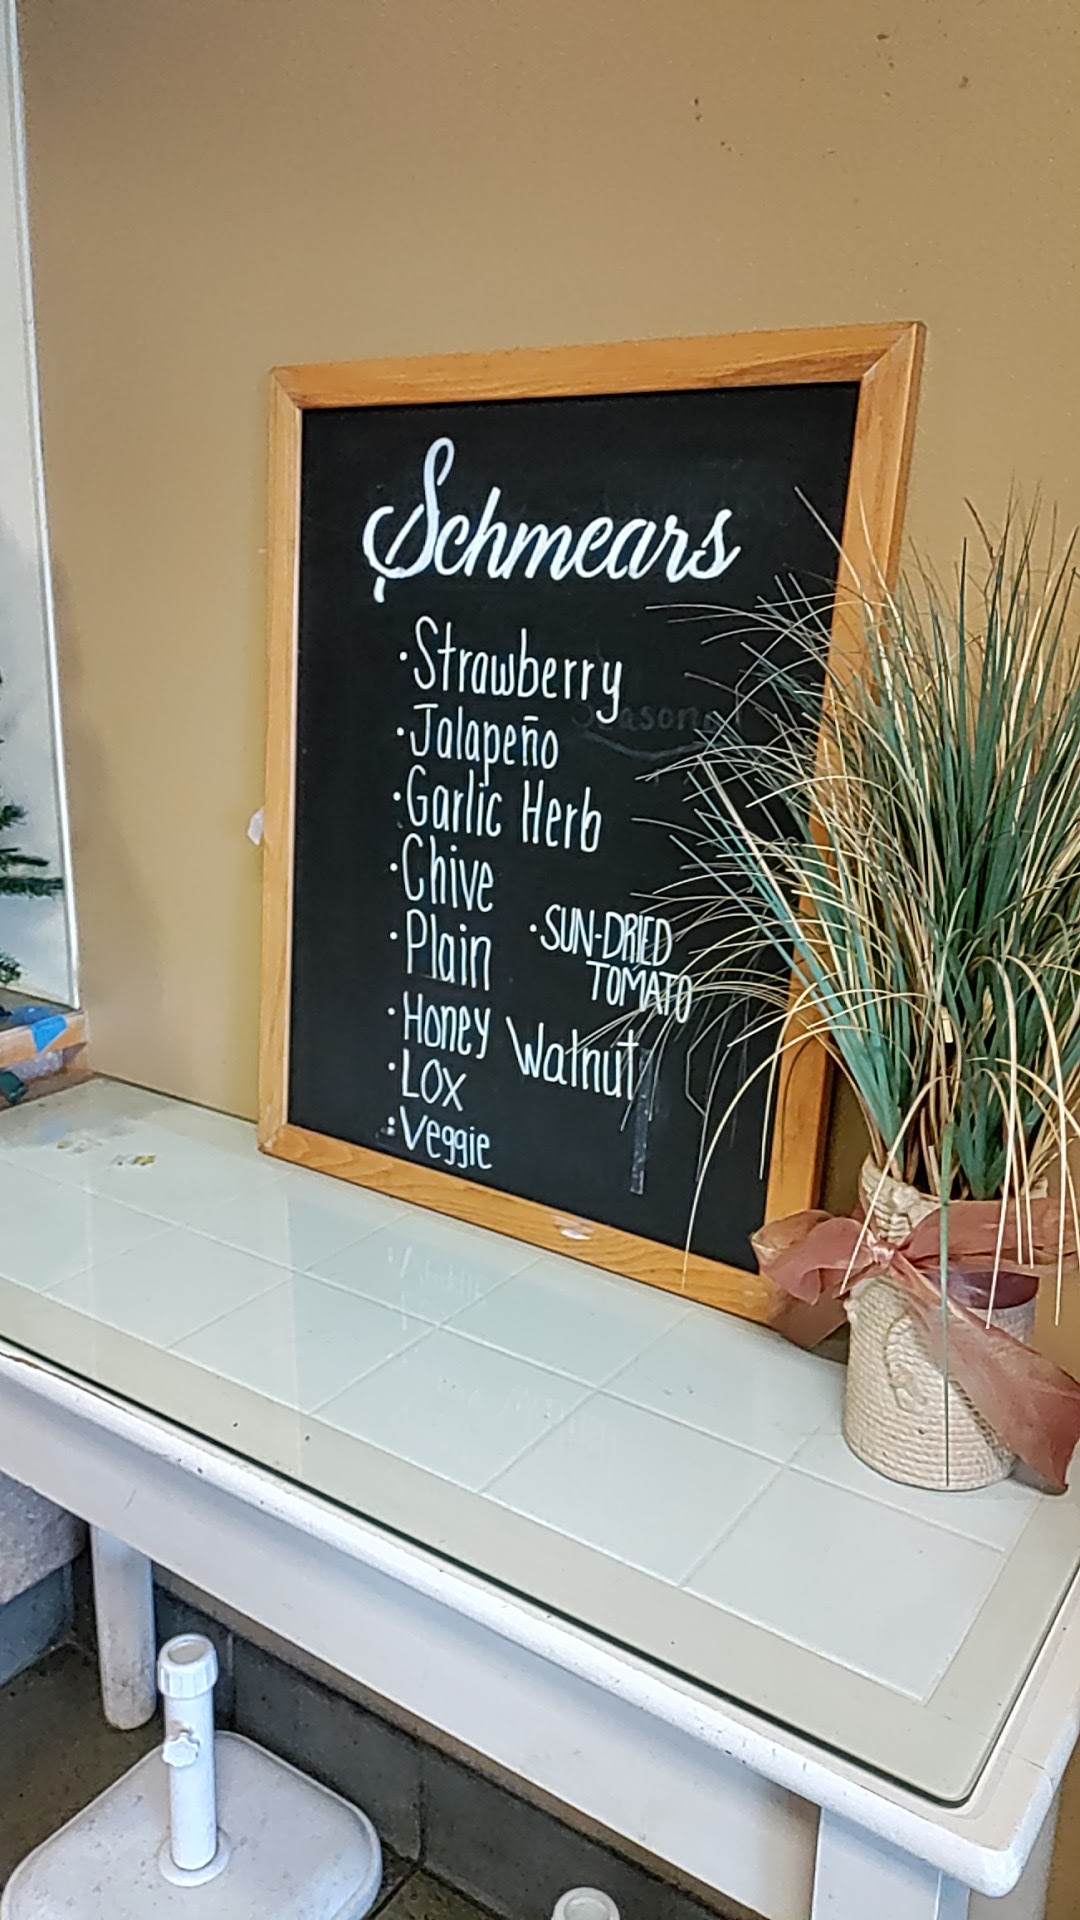 Schmears
· Strawberry
· Jalapeño
· Garlic Herb
· Chive
· Plain
· SUN-DRIED
TOMATO
· Honey Walnut
· Lox
· Veggie